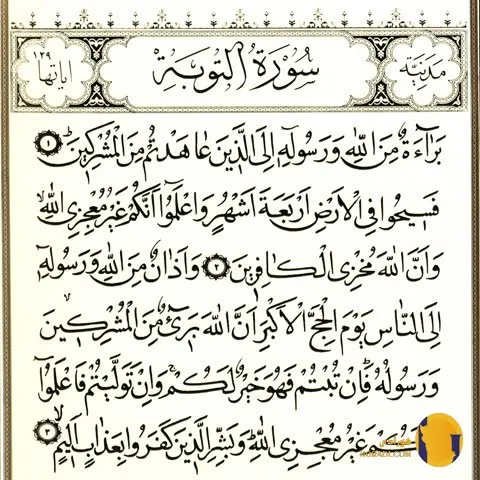 مَدَنِيَّة سُورَةُ التَّوْبَةِ اٰيَاتُهَا ١٢٩
بَرَٓاءَةٌ مِنَ اللّٰهِ وَرَسُولِهِٓ اِلَى الَّذِينَ عَاهَدْتُمْ مِنَ الْمُشْرِكِينَۜ ١
فَسِيحُوا فِي الْاَرْضِ اَرْبَعَةَ اَشْهُرٍ وَاعْلَمُٓوا اَنَّكُمْ غَيْرُ مُعْجِزِي اللّٰهِۙ
وَاَنَّ اللّٰهَ مُخْزِي الْكَافِرِينَ ٢ وَاَذَانٌ مِنَ اللّٰهِ وَرَسُولِهِٓ
اِلَى النَّاسِ يَوْمَ الْحَجِّ الْاَكْبَرِ اَنَّ اللّٰهَ بَرِٓيءٌ مِنَ الْمُشْرِكِينَۙ
وَرَسُولُهُۜ فَاِنْ تُبْتُمْ فَهُوَ خَيْرٌ لَكُمْۚ وَاِنْ تَوَلَّيْتُمْ فَاعْلَمُٓوا
غَيْرُ مُعْجِزِي اللّٰهِۜ وَبَشِّرِ الَّذِينَ كَفَرُوا بِعَذَابٍ اَلِيمٍۙ ٣